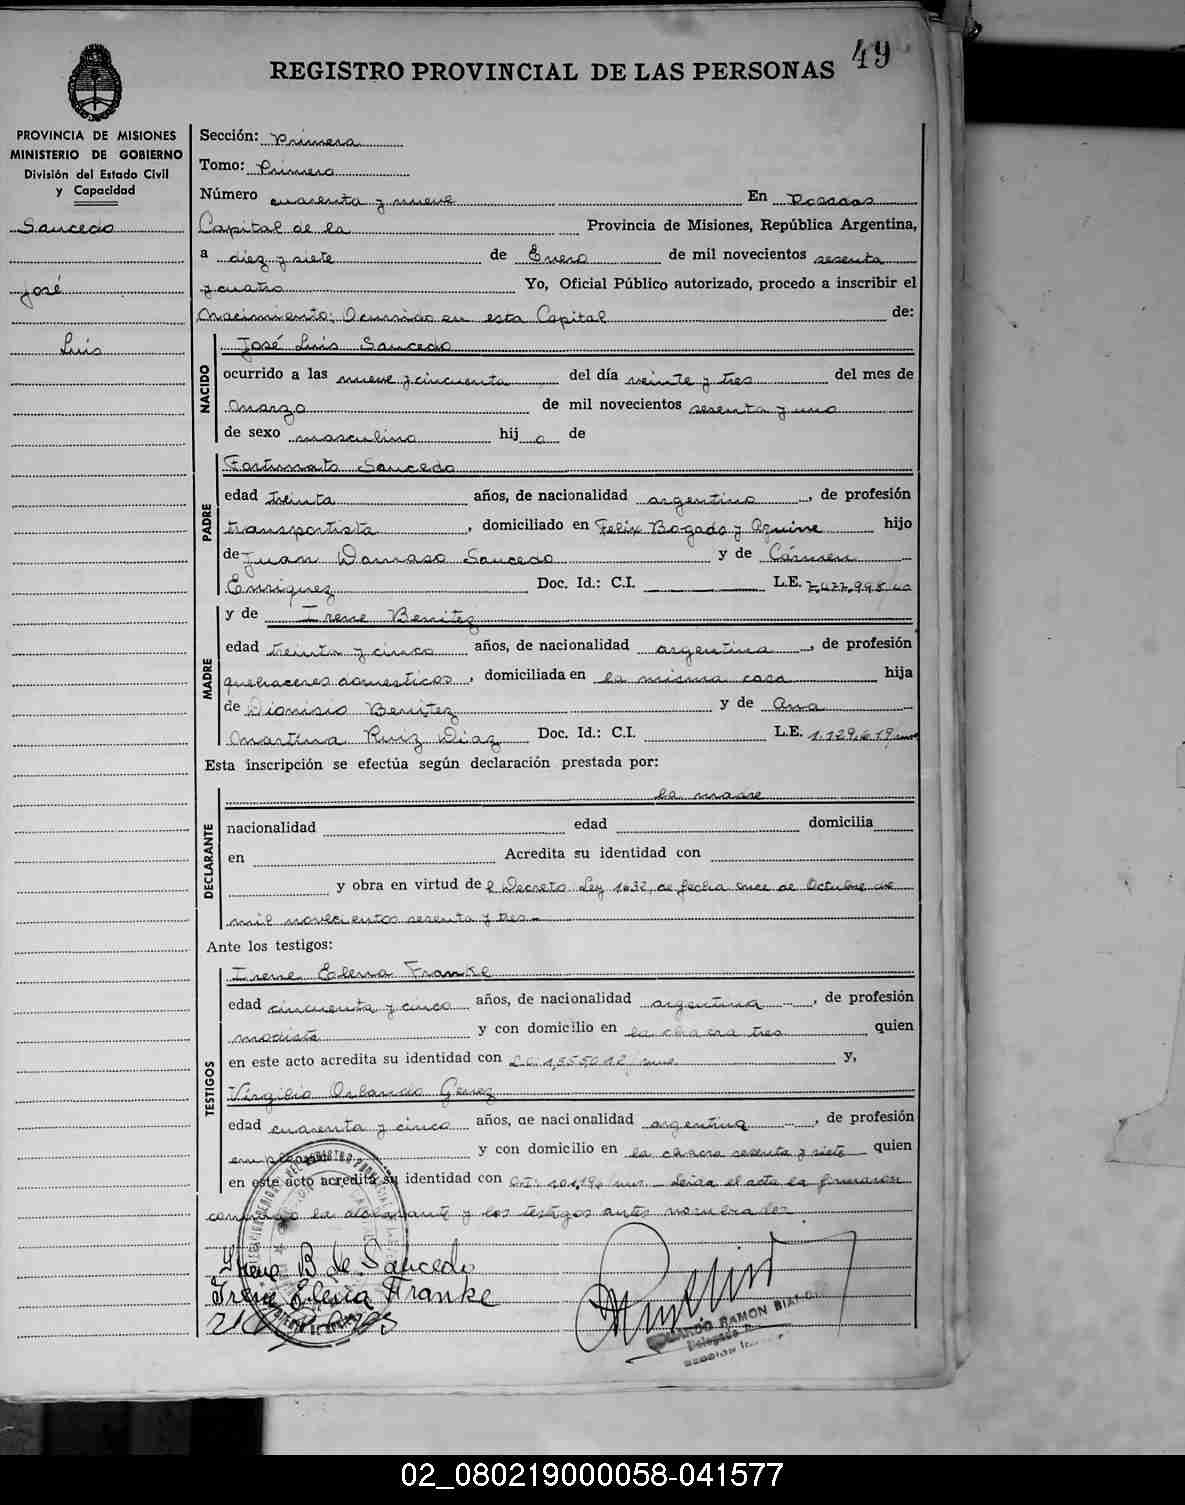 49
REGISTRO PROVINCIAL DE LAS PERSONAS
PROVINCIA DE MISIONES
MINISTERIO DE GOBIERNO
División del Estado Civil
y Capacidad
Saucedo
José
Luis
Sección: Primera
Tomo: Primero
Número cuarenta y nueve En Posadas
Capital de la Provincia de Misiones, República Argentina,
a diez y siete de Enero de mil novecientos sesenta
y cuatro Yo, Oficial Público autorizado, procedo a inscribir el
Nacimiento: Ocurrido en esta Capital de:
NACIDO
José Luis Saucedo
ocurrido a las nueve y cincuenta del día veinte y tres del mes de
Marzo de mil novecientos sesenta y uno
de sexo masculino hij o de
PADRE
Fortunato Saucedo
edad treinta años, de nacionalidad argentino, de profesión
transportista, domiciliado en Felix Bogado y Aguirre hijo
de Juan Damaso Saucedo y de Cármen
Enriquez Doc. Id.: C.I. L.E.
MADRE
y de Irene Benitez
edad treinta y cinco años, de nacionalidad argentina, de profesión
quehaceres domesticos, domiciliada en la misma casa hija
de Dionisio Benitez y de Ana
Martina Ruiz Diaz Doc. Id.: C.I. L.E.
Esta inscripción se efectúa según declaración prestada por:
DECLARANTE
la madre
nacionalidad edad domicilia
en Acredita su identidad con
y obra en virtud de l Decreto Ley 1632, de fecha once de Octubre de
mil novecientos sesenta y tres.-
Ante los testigos:
TESTIGOS
Irene Elena Franke
edad cincuenta y cinco años, de nacionalidad argentina, de profesión
modista y con domicilio en la chacra tres quien
en este acto acredita su identidad con y,
Virgilio Orlando Genez
edad cuarenta y cinco años, de nacionalidad argentina, de profesión
y con domicilio en la chacra sesenta y siete quien
en este acto acredita su identidad con Leida el acta la firmaron
conmigo la declarante y los testigos antes nombrados
Irene B de Saucedo
Irene Elena Franke
RAMON
02_080219000058-041577